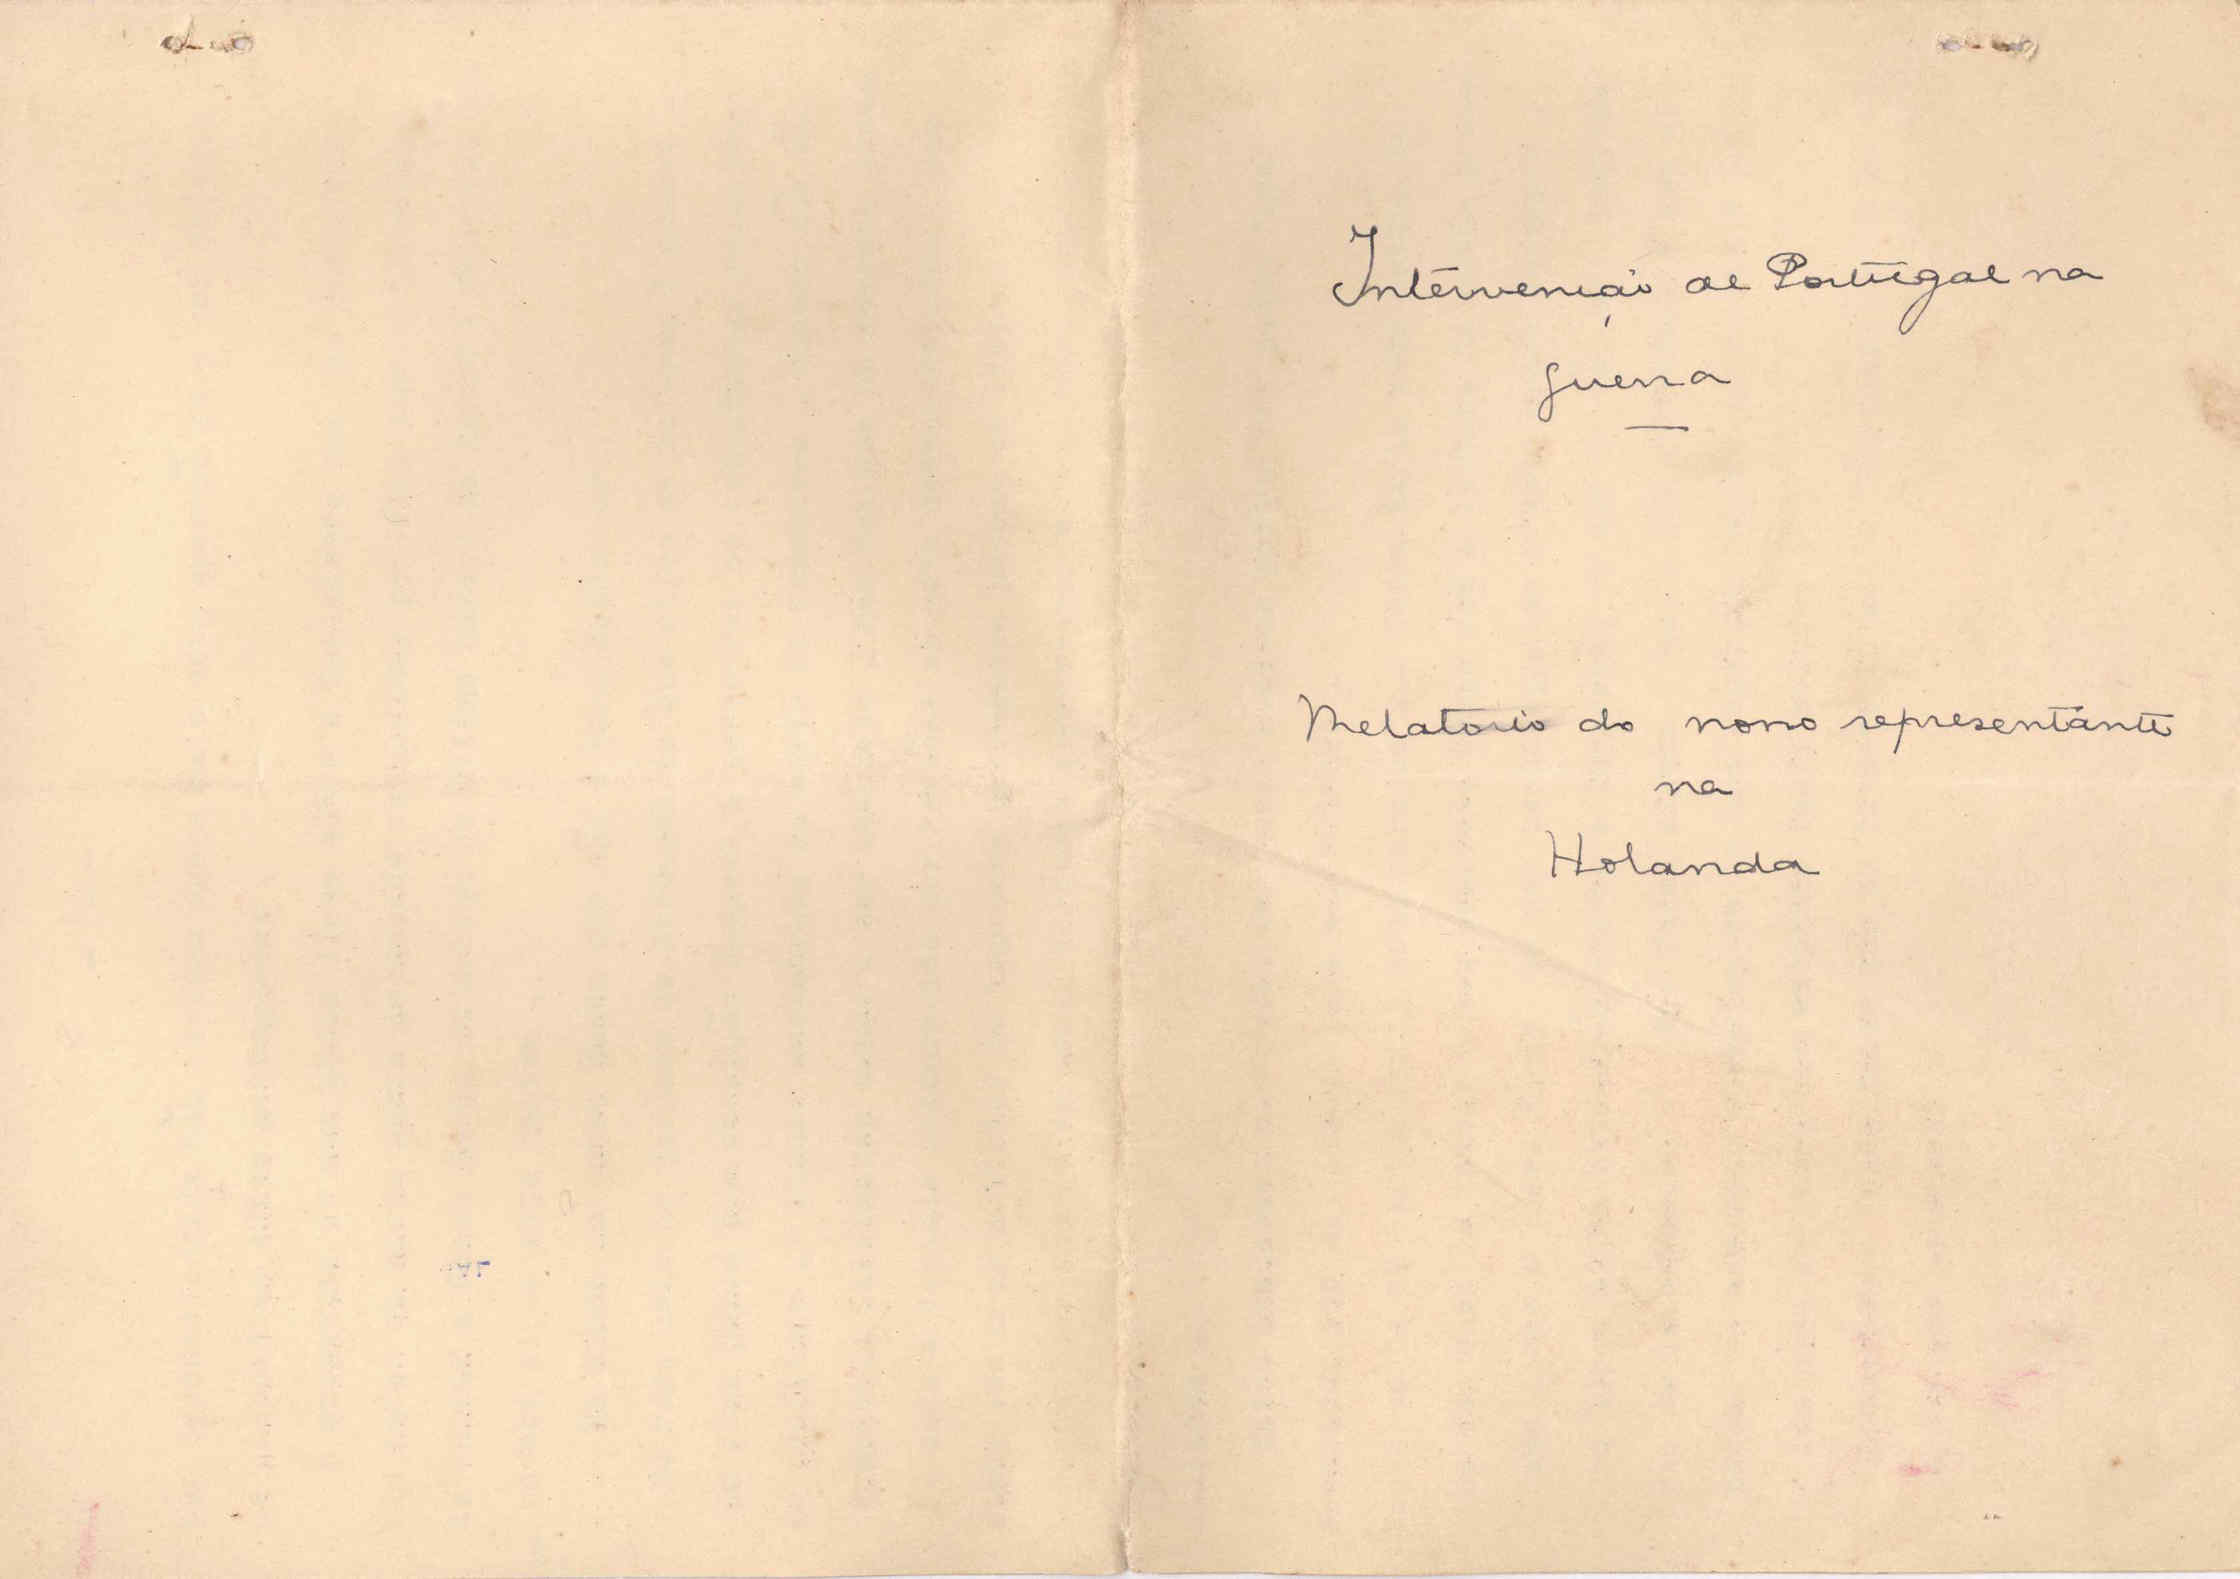 Intervenção de Portugal na
guerra
Relatorio do nosso representante
na
Holanda